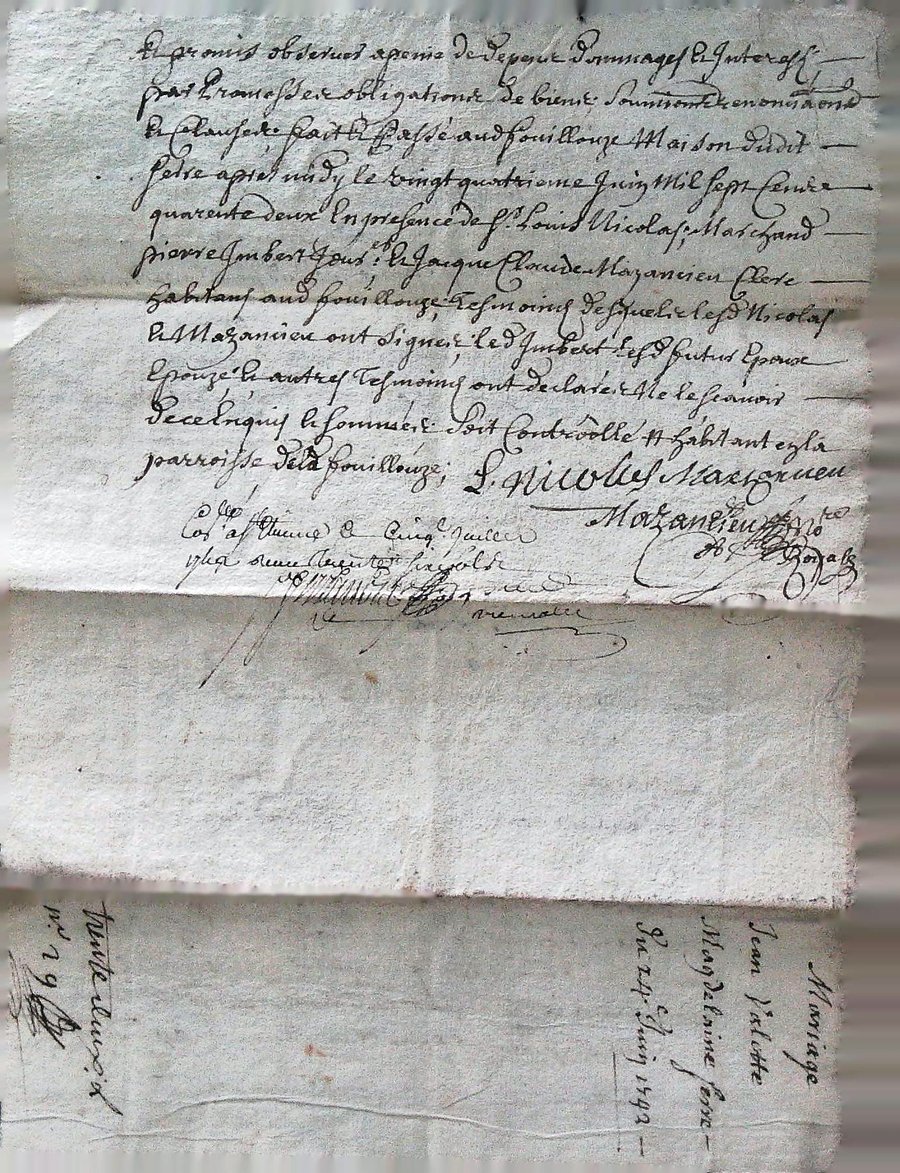 Et promis observer apeine de depens dommages et Interests
par Promesses obligations de biens, soumissions renonciaons
et Clauses, fait et Passé aud fouillouze Maison dudit
ferre aprés midy le vingt quatrieme Juin Mil sept Cents
quarente deux En presence de Sr. Louis Nicolas, Marchand
pierre Imbert et Jacque Claude Mazancieu Clerc
habitans aud fouillouze, Tesmoins desquels lesd Nicolas
et Mazancieu ont signer, led Imbert lesd futur Epoux
Epouze et autres Tesmoins ont declarer Ne le scavoir
de ce Enquis et sommés Soit Controollé habitant en la
parroisse dela fouillouze;
L. Nicolas Mazancieu
Mazancieu Nore
Royal
a St Etienne le Cinq Juillet
1742
Mariage
Jean Valotte
Magdelaine ferre
Du 24e Juin 1742
trente deux
no 29